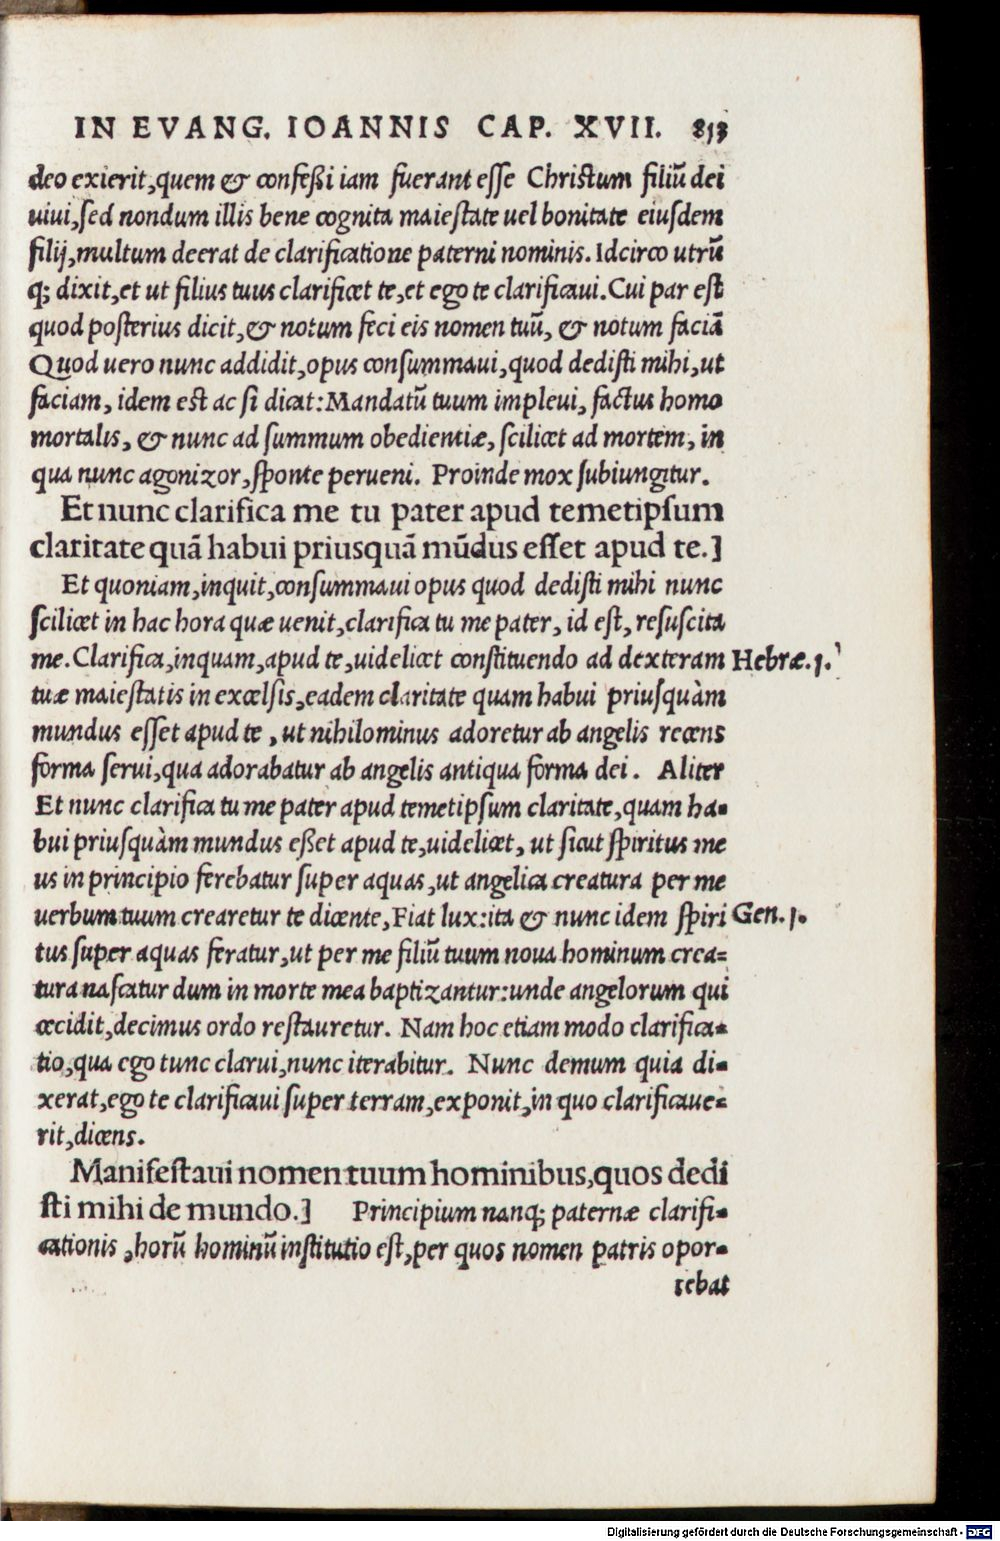 IN EVANG. IOANNIS CAP. XVII. 813
deo exierit, quem & confeßi iam fuerant esse Christum filiũ dei
uiui, sed nondum illis bene cognita maiestate uel bonitate eiusdem
filij, multum deerat de clarificatione paterni nominis. Idcirco utrũ
q; dixit, et ut filius tuus clarificet te, et ego te clarificaui. Cui par est
quod posterius dicit, & notum feci eis nomen tuũ, & notum faciã
Quod uero nunc addidit, opus consummaui, quod dedisti mihi, ut
faciam, idem est ac si dicat: Mandatũ tuum impleui, factus homo
mortalis, & nunc ad summum obedientiæ, scilicet ad mortem, in
qua nunc agonizor, sponte perueni. Proinde mox subiungitur.
Et nunc clarifica me tu pater apud temetipsum
claritate quã habui priusquã mũdus esset apud te.]
Et quoniam, inquit, consummaui opus quod dedisti mihi nunc
scilicet in hac hora quæ uenit, clarifica tu me pater, id est, resuscita
me. Clarifica, inquam, apud te, uidelicet constituendo ad dexteram Hebræ. 1.
tuæ maiestatis in excelsis, eadem claritate quam habui priusquàm
mundus esset apud te, ut nihilominus adoretur ab angelis recens
forma serui, qua adorabatur ab angelis antiqua forma dei. Aliter
Et nunc clarifica tu me pater apud temetipsum claritate, quam ha-
bui priusquàm mundus eßet apud te, uidelicet, ut sicut spiritus me
us in principio ferebatur super aquas, ut angelica creatura per me
uerbum tuum crearetur te dicente, Fiat lux: ita & nunc idem spiri Gen. 1.
tus super aquas feratur, ut per me filiũ tuum noua hominum crea=
tura nascatur dum in morte mea baptizantur: unde angelorum qui
cecidit, decimus ordo restauretur. Nam hoc etiam modo clarifica-
tio, qua ego tunc clarui, nunc iterabitur. Nunc demum quia di-
xerat, ego te clarificaui super terram, exponit, in quo clarificaue=
rit, dicens.
Manifestaui nomen tuum hominibus, quos dedi
sti mihi de mundo.] Principium nanq; paternæ clarifi-
cationis, horũ hominũ institutio est, per quos nomen patris opor-
tebat
Digitalisierung gefördert durch die Deutsche Forschungsgemeinschaft - DFG